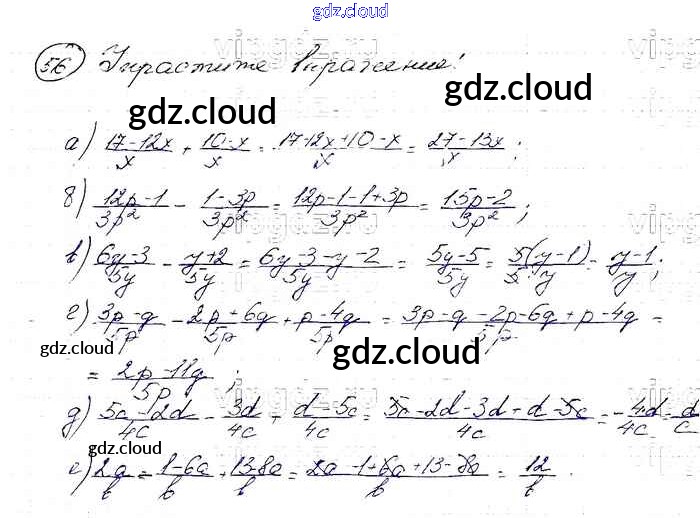 gdz.cloud
56 Упростите выражение:
gdz.cloud gdz.cloud
а) (17-12x)/x + (10-x)/x = (17-12x+10-x)/x = (27-13x)/x ;
б) (12p-1)/3p² - (1-3p)/3p² = (12p-1-1+3p)/3p² = (15p-2)/3p² ;
в) (6y-3)/5y - (y+2)/5y = (6y-3-y-2)/5y = (5y-5)/5y = 5(y-1)/5·y = (y-1)/y ;
г) (3p-q)/5p - (2p+6q)/5p + (p-4q)/5p = (3p-q-2p-6q+p-4q)/5p =
gdz.cloud gdz.cloud
= (2p-11q)/5p ;
д) (5c-2d)/4c - 3d/4c + (d-5c)/4c = (5c-2d-3d+d-5c)/4c = -4d/4c - d/c
gdz.cloud
е) 2a/b - (1-6a)/b + (13-8a)/b = (2a-1+6a+13-8a)/b = 12/b .